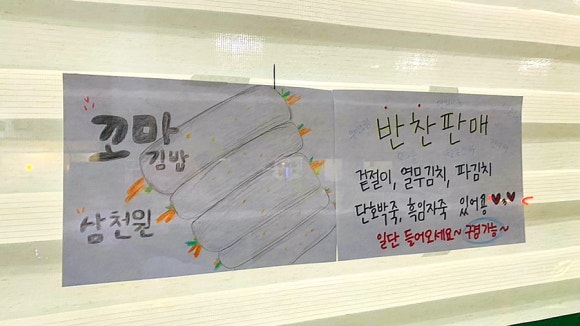 꼬마
김밥
삼천원
반찬판매
겉절이, 열무김치, 파김치
단호박죽, 흑임자죽 있어용
일단 들어오세요~ 구경가능~